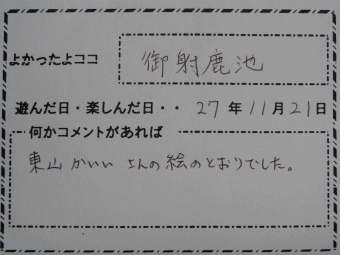 よかったよココ 御射鹿池
遊んだ日・楽しんだ日・・ 27 年 11 月 21 日
何かコメントがあれば
東山かいい さんの絵のとおりでした。